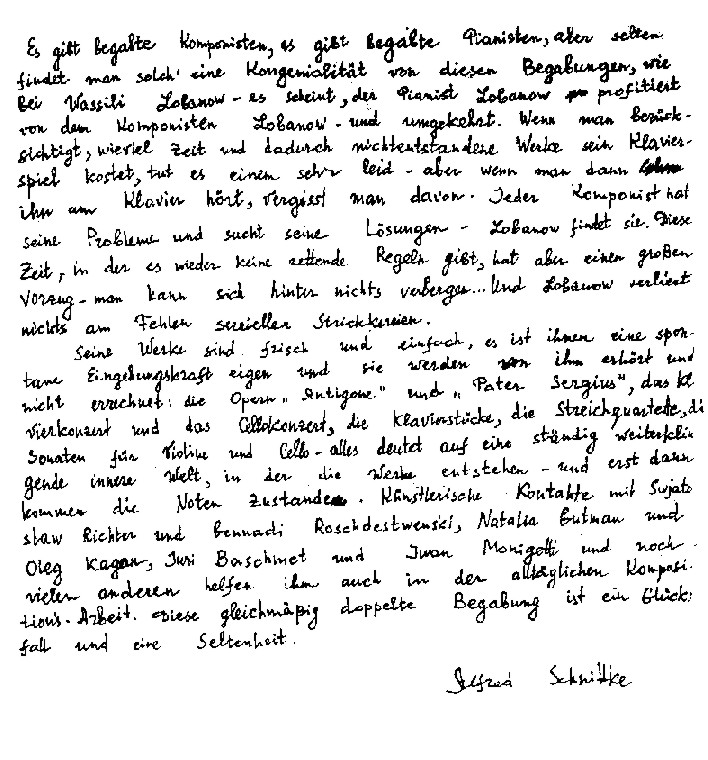 Es gibt begabte Komponisten, es gibt begabte Pianisten, aber selten
findet man solch' eine Kongenialität von diesen Begabungen, wie
bei Wassili Lobanow - es scheint, der Pianist Lobanow profitiert
von dem Komponisten Lobanow - und umgekehrt. Wenn man berück-
sichtigt, wieviel Zeit und dadurch nichtentstandene Werke sein Klavier-
spiel kostet, tut es einem sehr leid - aber wenn man dann
ihn am Klavier hört, vergisst man davon. Jeder Komponist hat
seine Probleme und sucht seine Lösungen - Lobanow findet sie. Diese
Zeit, in der es wieder keine rettende Regeln gibt, hat aber einen großen
Vorzug - man kann sich hinter nichts verbergen... Und Lobanow verliert
nichts am Fehlen serieller Strickkereien.
Seine Werke sind frisch und einfach, es ist ihnen eine spon-
tane Eingebungskraft eigen und sie werden von ihm erhört und
nicht errechnet: die Opern „Antigone" und „Pater Sergius", das Kla
vierkonzert und das Cellokonzert, die Klavierstücke, die Streichquartette, di
Sonaten für Violine und Cello - alles deutet auf eine ständig weiterklin
gende innere Welt, in der die Werke entstehen - und erst dann
kommen die Noten zustande. Künstlerische Kontakte mit Swjato
slaw Richter und Gennadi Roschdestwenski, Natalia Gutman und
Oleg Kagan, Juri Baschmet und Iwan Monigetti und noch
vielen anderen helfen ihm auch in der alltäglichen Komposi-
tions-Arbeit. Diese gleichmäßig doppelte Begabung ist ein Glücks
fall und eine Seltenheit.
Alfred Schnittke